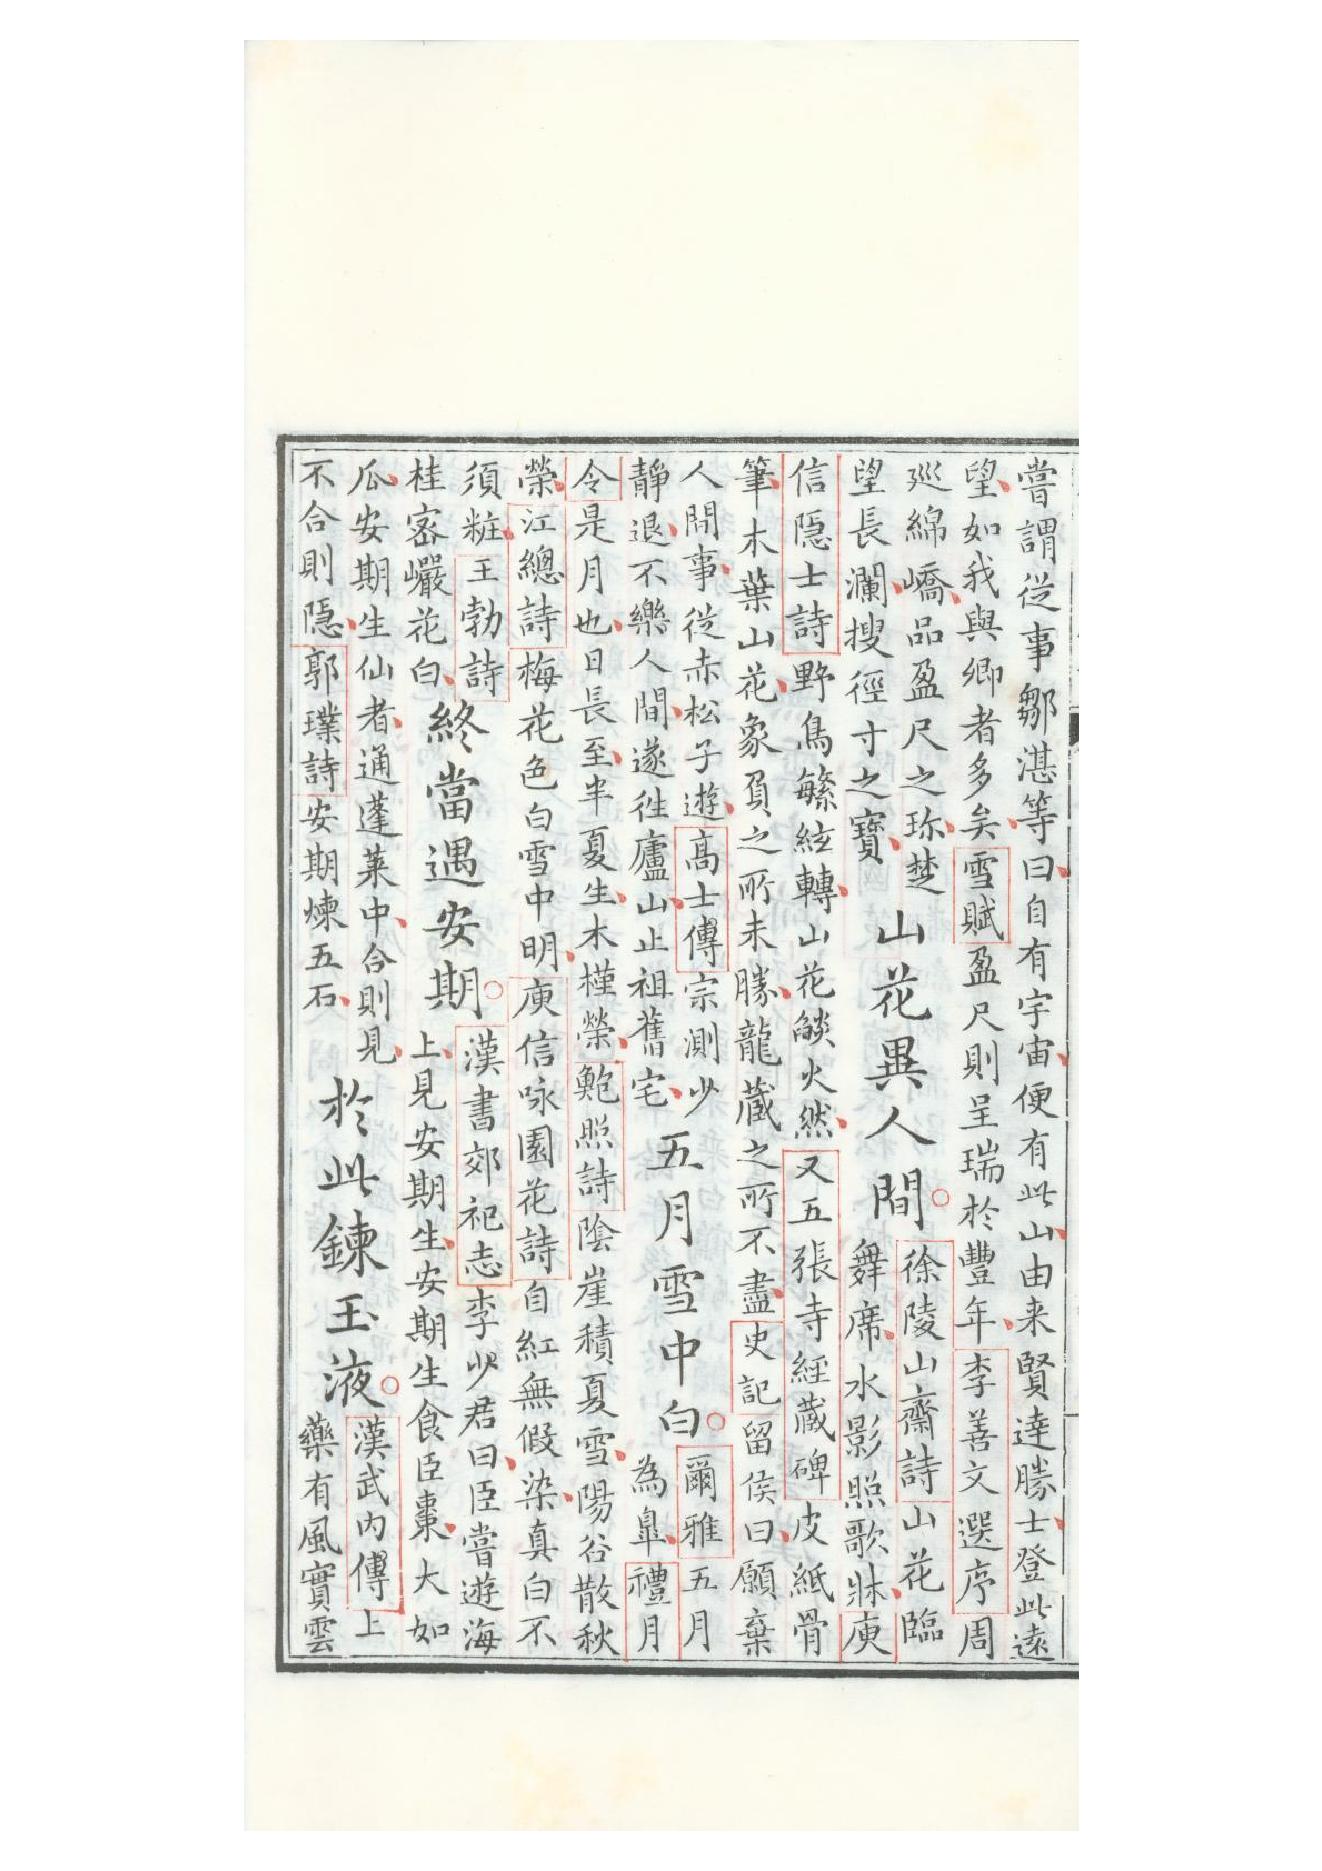 嘗謂從事鄒湛等曰自有宇宙便有此山由来賢達勝士登此遠
望如我與卿者多矣雪賦盈尺則呈瑞於豐年李善文選序周
巡綿嶠品盈尺之珎楚
望長瀾搜徑寸之寶
山花異人間
徐陵山齋詩山花臨
舞席水影照歌牀庾
信隱士詩野鳥繁絃轉山花㷋火然又五張寺經藏碑皮紙骨
筆木葉山花象負之所未勝龍藏之所不盡史記留侯曰願棄
人間事從赤松子遊高士傳宗測少
靜退不樂人間遂往廬山止祖舊宅
五月雪中白
爾雅五月
為皐禮月
令是月也日長至半夏生木槿榮鮑照詩陰崖積夏雪陽谷散秋
榮江總詩梅花色白雪中明庾信咏園花詩自紅無假染真白不
須粧王勃詩
桂密巖花白
終當遇安期
漢書郊祀志李少君曰臣嘗遊海
上見安期生安期生食臣棗大如
瓜安期生仙者通蓬萊中合則見
不合則隱郭璞詩安期煉五石
於此鍊玉液
漢武内傳上
藥有風實雲